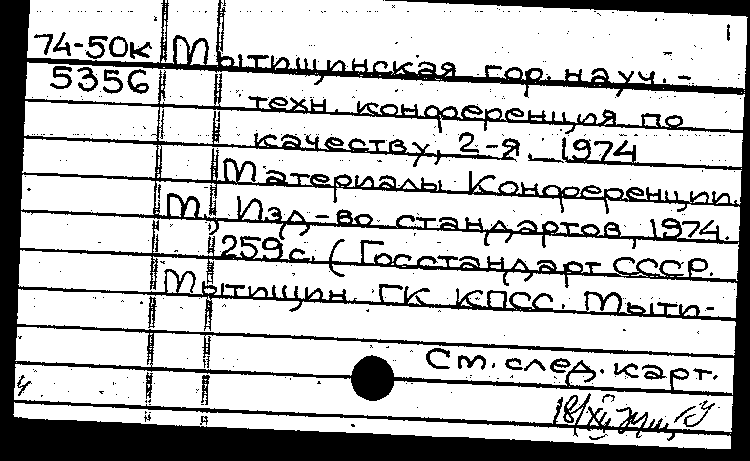 1
74-50к Мытищинская гор. науч.-
5356
техн. конференция по
качеству, 2-я. 1974
Материалы Конференции.
М., Изд-во стандартов, 1974.
259с. (Госстандарт СССР.
Мытищин. ГК КПСС. Мыти-
См. след. карт.
ч
18/XII